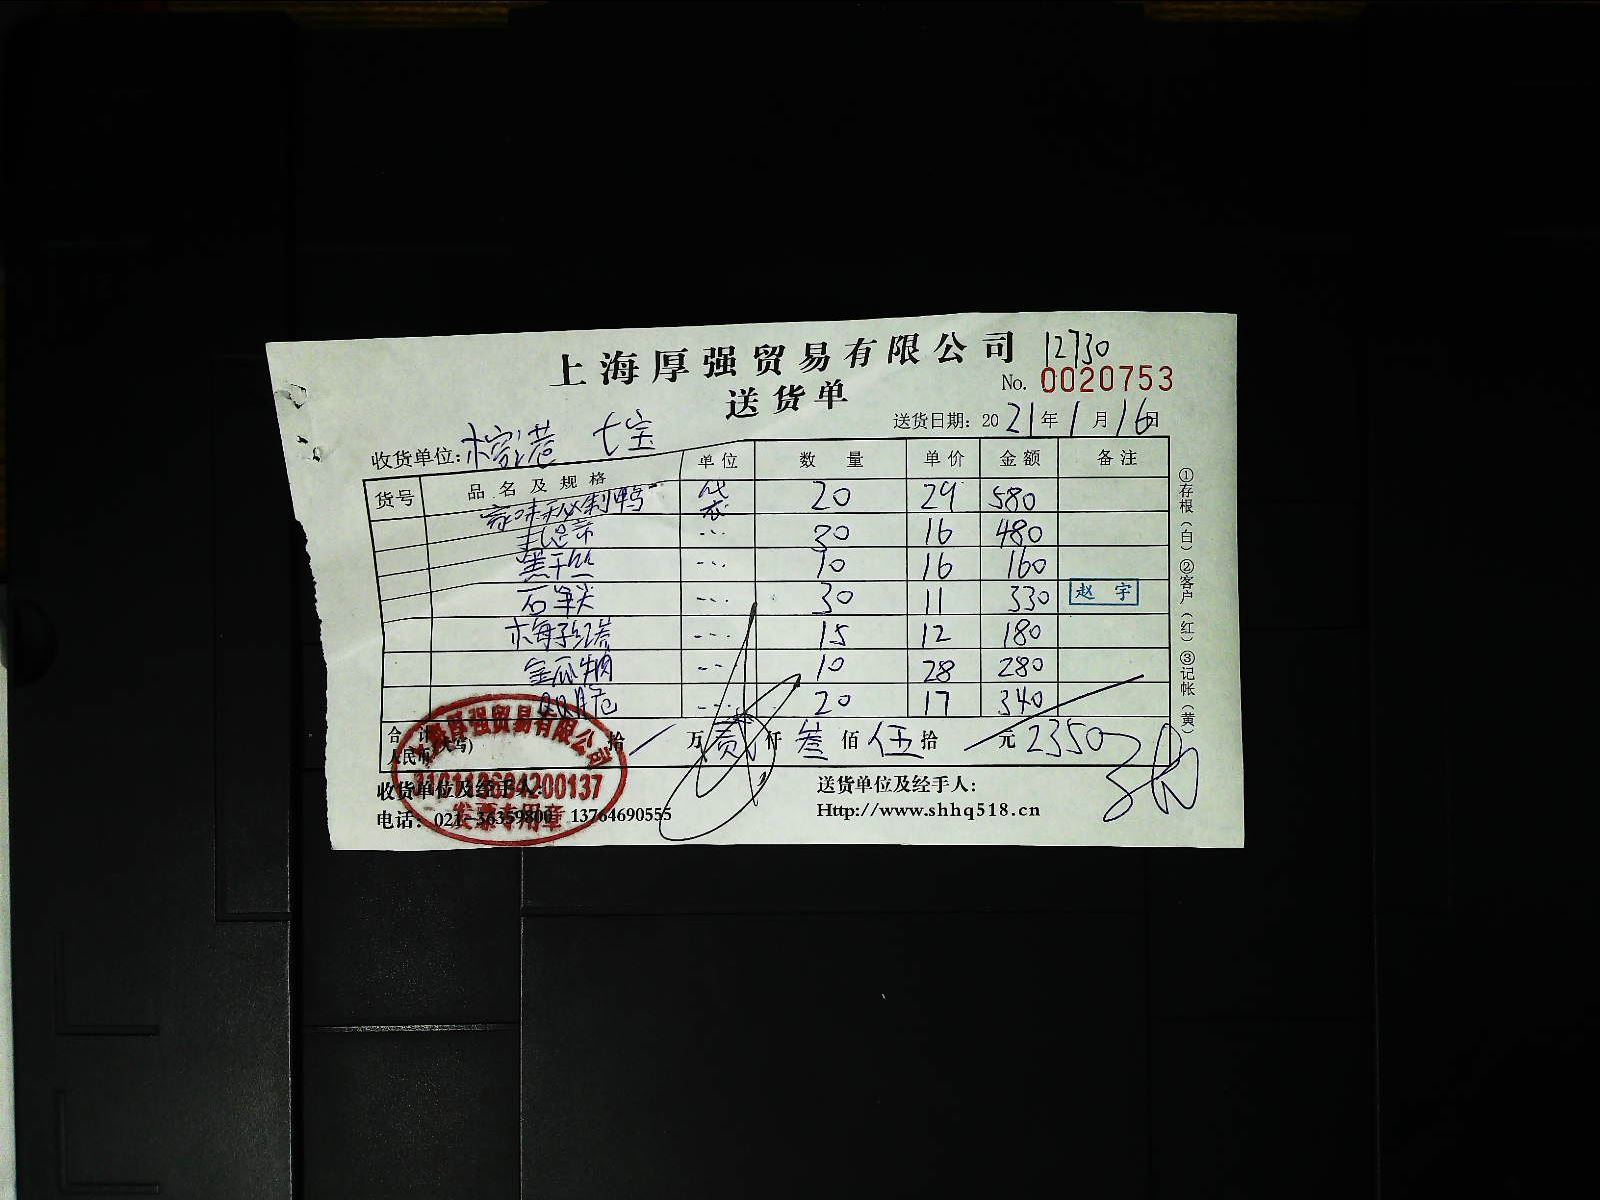 上海厚强贸易有限公司 12730
送货单 No. 0020753
送货日期: 2021年1月16日
收货单位: 七宝
货号 品名及规格 单位 数量 单价 金额 备注
袋 20 29 580
30 16 480
黑千丝 10 16 160
30 11 330 赵宇
15 12 180
10 28 280
20 17 340
合计人民币(大写) 拾 万 贰仟 叁佰 伍拾 元 2350
收货单位及经手人: 送货单位及经手人:
电话: 021-36359800 13764690555 Http://www.shhq518.cn
①存根(白)②客户(红)③记帐(黄)
上海厚强贸易有限公司
发票专用章